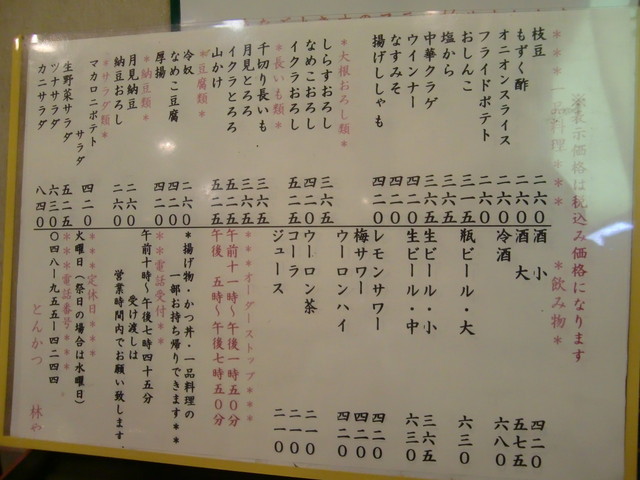 ※表示価格は税込み価格になります
＊＊＊一品料理＊＊＊
枝豆 二六〇
もずく酢 二一〇
オニオンスライス 二六〇
フライドポテト 二六〇
おしんこ 三一五
塩から 三六五
中華クラゲ 三六五
ウインナー 四二〇
なすみそ 四二〇
揚げししゃも 四二〇
＊大根おろし類＊
しらすおろし 三六五
なめこおろし 四二〇
イクラおろし 五二五
＊長いも類＊
千切り長いも 三六五
月見とろろ 三六五
イクラとろろ 五二五
山かけ 五二五
＊豆腐類＊
冷奴 二六〇
なめこ豆腐 四二〇
厚揚 四二〇
＊納豆類＊
月見納豆 二六〇
納豆おろし 二六〇
＊サラダ類＊
マカロニポテトサラダ 四二〇
生野菜サラダ 五二五
ツナサラダ 六三〇
カニサラダ 八四〇
＊飲み物＊
酒 小 四二〇
酒 大 五七五
冷酒 六八〇
瓶ビール・大 六三〇
生ビール・小 三六五
生ビール・中 六三〇
レモンサワー 四二〇
梅サワー 四二〇
ウーロンハイ 四二〇
ウーロン茶 二一〇
コーラ 二一〇
ジュース 二一〇
＊＊＊オーダーストップ＊＊＊
午前十一時〜午後一時五〇分
午後 五時〜午後七時五〇分
＊揚げ物・かつ丼・一品料理の
一部お持ち帰りできます＊＊
＊＊電話受付＊＊
午前十時〜午後七時四十五分
受け渡しは
営業時間内でお願い致します．
＊＊＊定休日＊＊＊
火曜日（祭日の場合は水曜日）
＊＊＊電話番号＊＊＊
〇四八ー九五五ー四二四四
とんかつ 林や